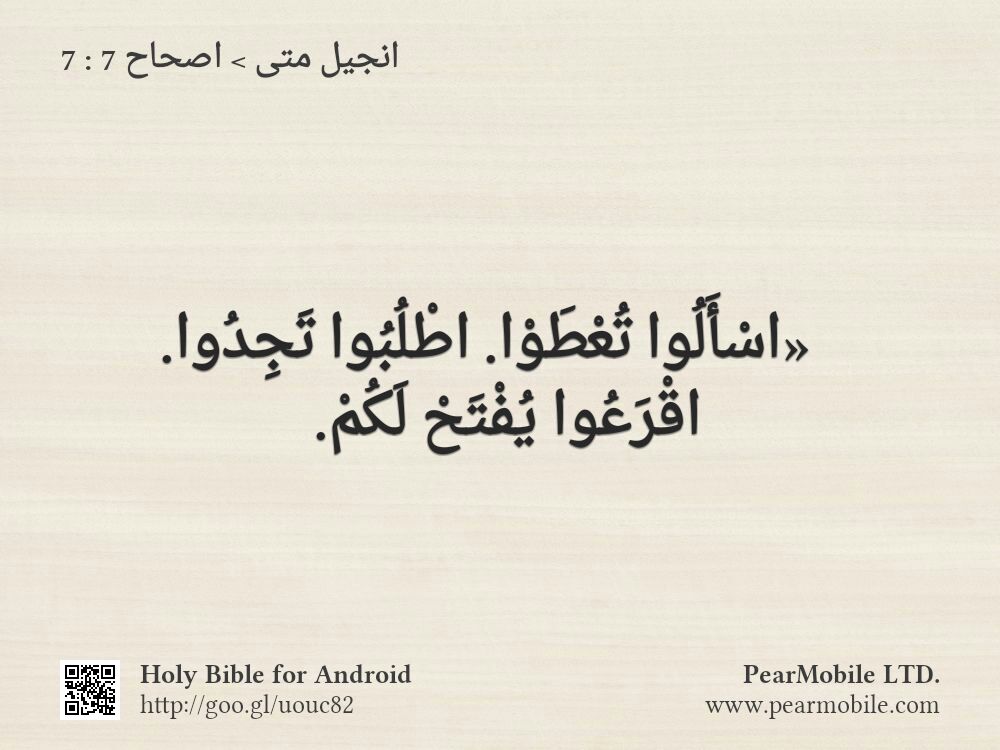 انجيل متى > اصحاح 7 : 7
«اسْأَلُوا تُعْطَوْا. اطْلُبُوا تَجِدُوا.
اقْرَعُوا يُفْتَحْ لَكُمْ.
Holy Bible for Android
http://goo.gl/uouc82
PearMobile LTD.
www.pearmobile.com